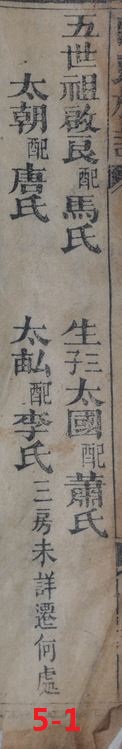 五世祖啟良配馬氏 生三子太國配蕭氏
太朝配唐氏 太畝配李氏三房未詳遷何處
5-1